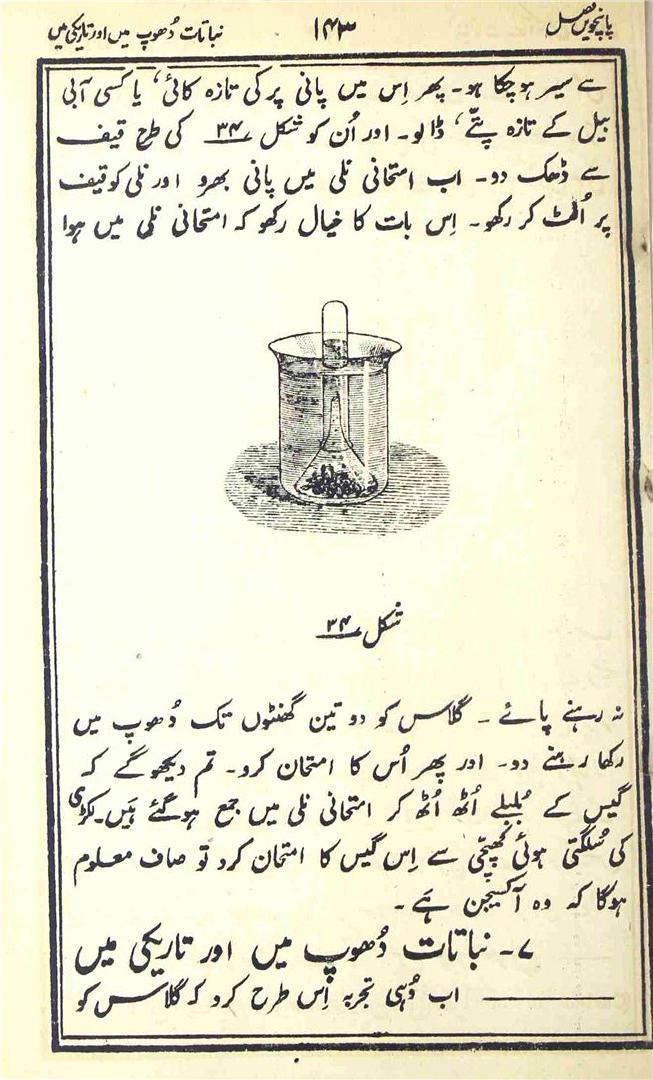 پانچویں فصل
۱۴۳
نباتات دُھوپ میں اور تاریکی میں
سے سیر ہو چکا ہو۔ پھر اِس میں پانی پر کی تازہ کائی، یا کسی آبی
بیل کے تازہ پتّے، ڈالو۔ اور اُن کو شکل ۳۴ کی طرح قیف
سے ڈھک دو۔ اب امتحانی نلی میں پانی بھرو اور نلی کو قیف
پر اُلٹ کر رکھو۔ اِس بات کا خیال رکھو کہ امتحانی نلی میں ہوا
شکل ۳۴
نہ رہنے پائے۔ گلاس کو دو تین گھنٹوں تک دُھوپ میں
رکھا رہنے دو۔ اور پھر اُس کا امتحان کرو۔ تم دیکھو گے کہ
گیس کے بُلبلے اُٹھ اُٹھ کر امتحانی نلی میں جمع ہو گئے ہَیں۔ لکڑی
کی سُلگتی ہوئی کھپچّی سے اِس گیس کا امتحان کرو تو صاف معلوم
ہوگا کہ وہ آکسیجن ہَے۔
۷۔ نباتات دُھوپ میں اور تاریکی میں
اب وُہی تجربہ اِس طرح کرو کہ گلاس کو